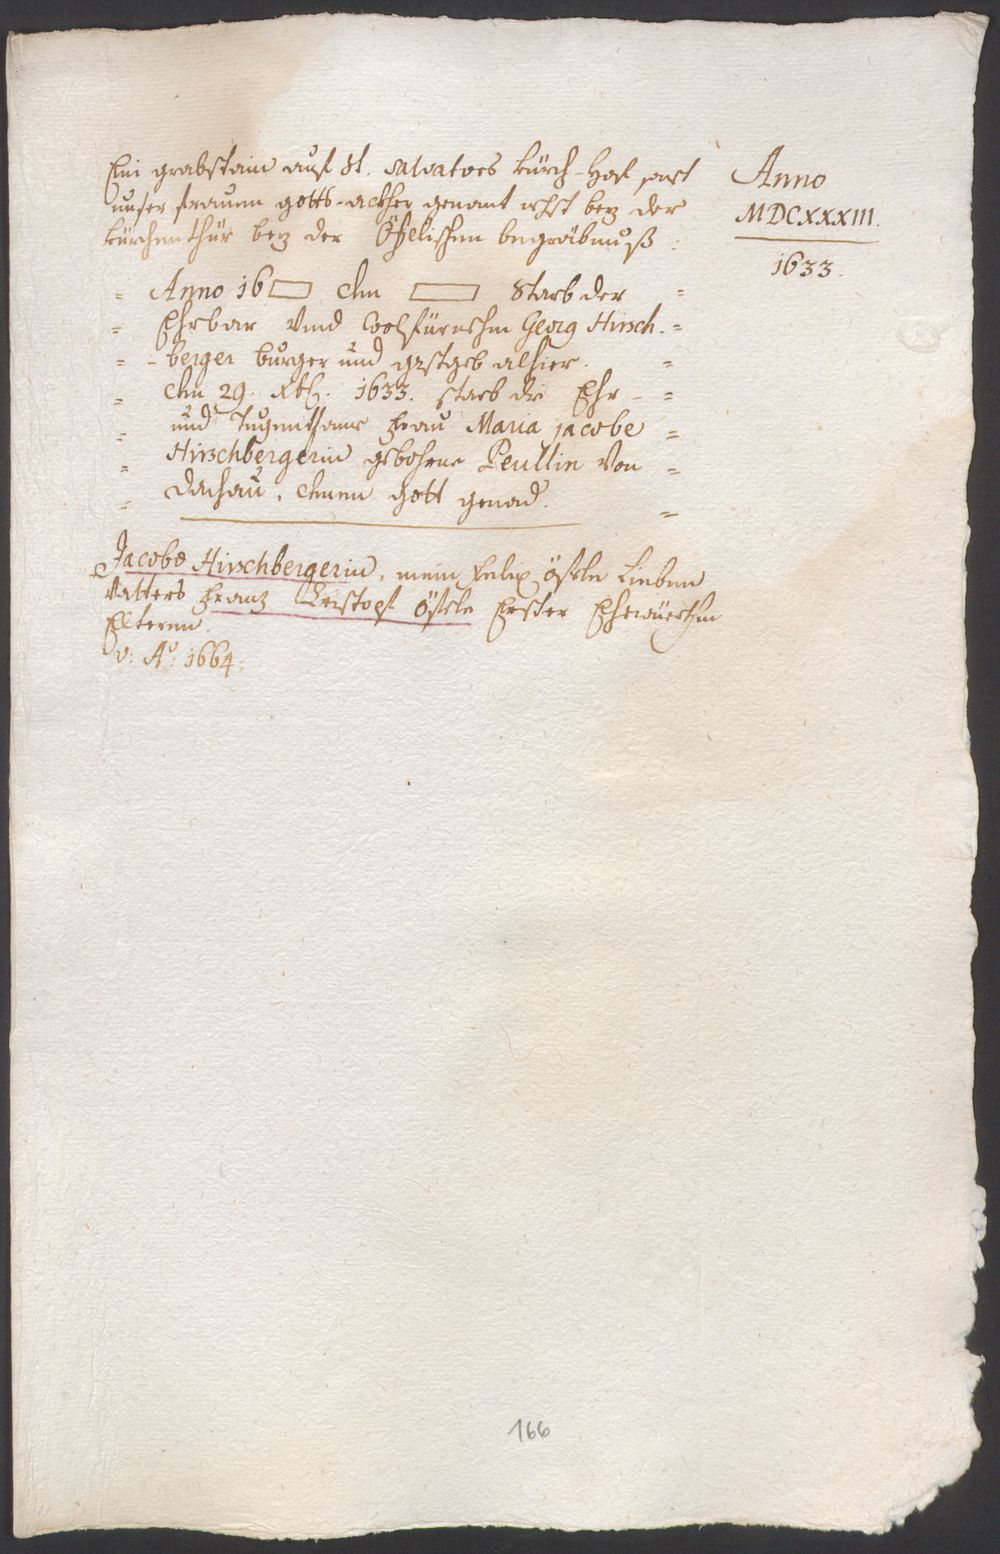 Ein grabstain auf St. Salvators kürch-Hof sonst
unser frauen gotts-ackher genant rechst bey der
kürchenthür bey der Öfelischen begräbnuß
Anno 16 den Starb der
Ehrbar Vnd Wolfürnehm Georg Hirsch-
berger burger und gastgeb alhier.
den 29. Xb. 1633. starb die Ehr-
und Tugentsame frau Maria jacobe
Hirschbergerin gebohrne Peutlin Von
Dachau, denen Gott genad.
Jacobe Hirschbergerin, mein Felix Öfele Lieben
Vatters Franz Christoph Öfele Erster Ehewürthin
Elteren.
v: Aº: 1664.
Anno
MDCXXXIII.
1633.
166